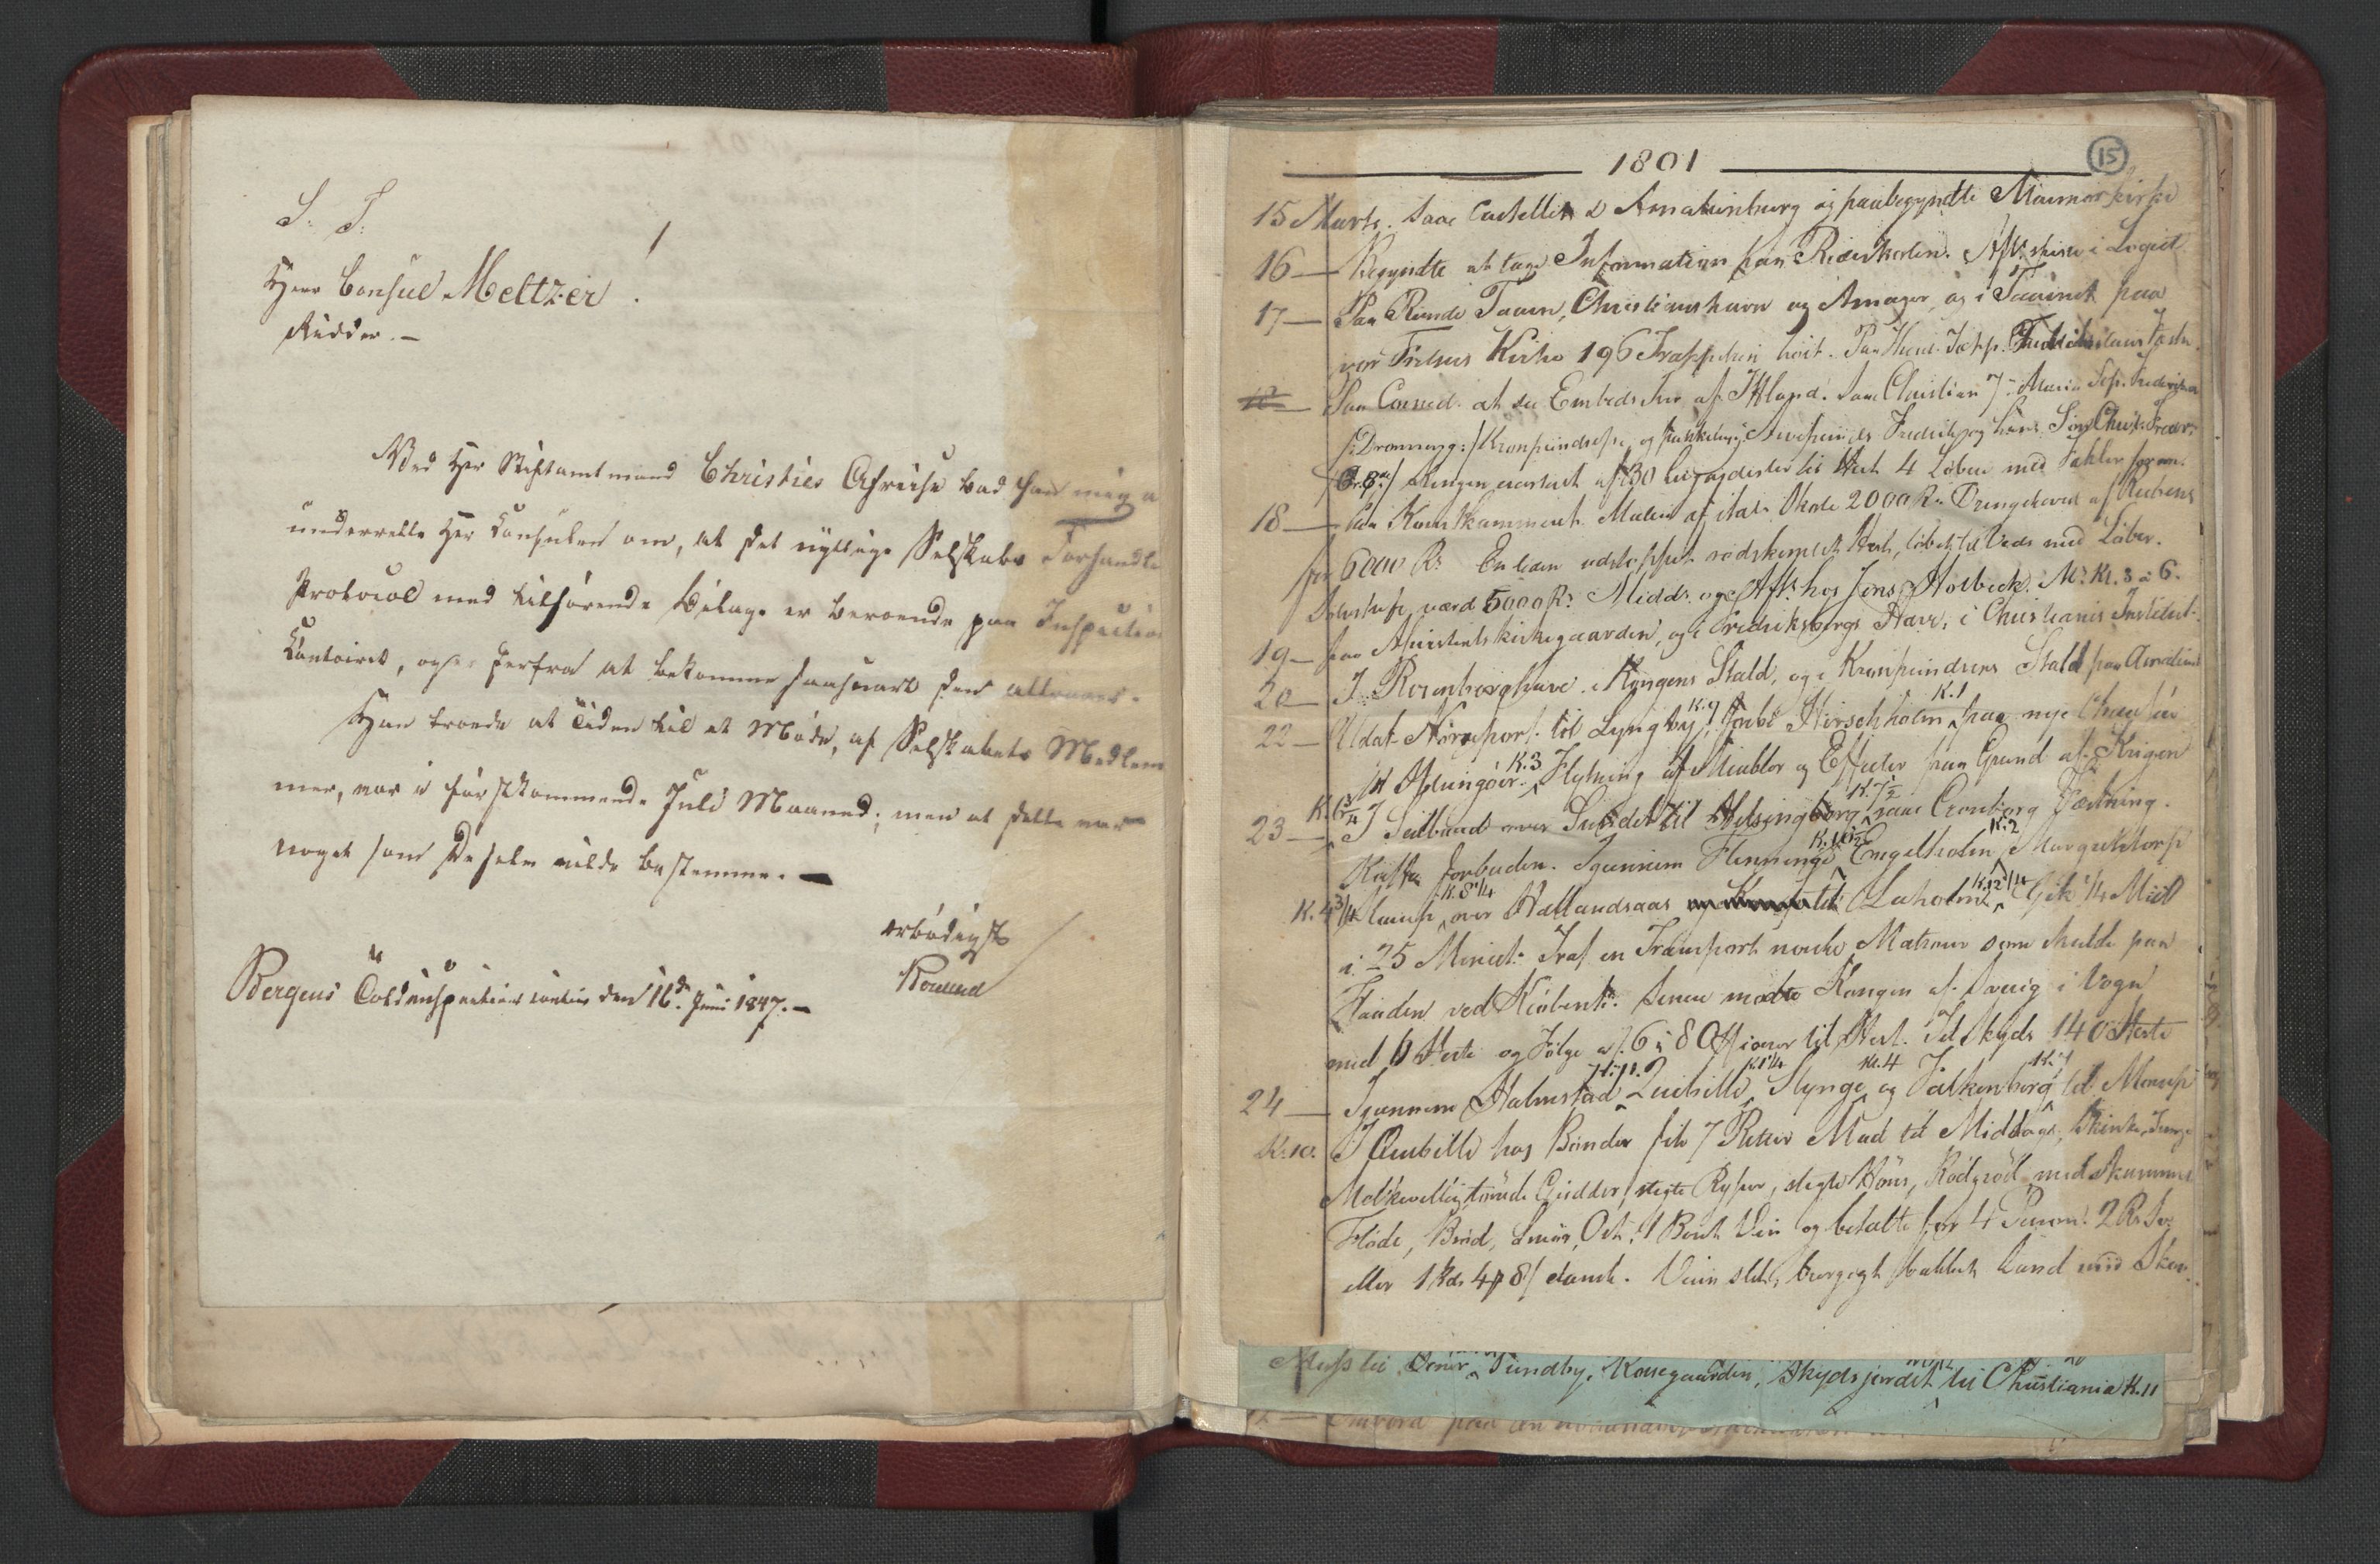 S. T.
Herr Consul Meltzer.
Ridder. –
Ved Hr Stiftamtmand Christies Afreise bad han mig a
underrette Hr Consulen om, at det nyttige Selskabs Forhandl
Protocol med tilhørende Bilage er beroende paa Inspection
Contoiret, og derfra at bekomme saasnart den attraaes.
Han troede at Tiden til et Møde, af Selskabets Medlem
mer, var i førstkommende Juli Maaned; men at dette var
noget som De selv vilde bestemme. –
ærbødigst
Bergens Toldinspections contoir den 16de Juni 1847. –
1801
15
15 Marts. Saae Castellet & Amalienburg og paabegyndte Marmorkirke
16 — Begyndte at tage Information paa Rideskolen. Aft. spiste i Logiet
17 — Paa Runde Taarn, Christianshavn og Amager, og i Taarnet paa
vor Frelsers Kirke 196 Trappetrin høit.
Paa Comed. at see Embeds Iver af Iffland. Saae Christian 7 Maria Sop. Frederikca
/: Dronning :/ Kronprindsesse, og Arveprinds Fredrik og hans Søn Christ. Freder.
Kongen escorteret af 30 til Hest 4 Løbere med Fakler foran.
18 — Paa Kunstkammeret. Malerie af ital. Skole 2000 Rd. Drengehoved af Rubens
for 6000 Rd. En liden udstoppet rødskimlet Hest, løbet til Veds med Løber.
værd 5000 Rd. Midd. og Aft. hos Jens Holbeck. M. Kl. 3 a 6.
19 — paa Assistentskirkegaarden, og i Fredriksbergs Have, i Christianis Institut.
20 — I Rosenborghave. i Kongens Stald, og i Kronprindsens Stald paa Amalienb
22 — Ud at Nørreport til Lyngby, K. 9 forbi Hirschholm K. 1 paa nye Chaussée
til Helsingøer. K. 3 Flytning af Meubler og Effecter paa Grund af Krigen
23 — K. 6¾ I Seilbaad over Sundet til Helsingborg K. 7½ saae Cronborg Fæstning.
Kaffe forbuden. Igjennem Flenninge K. 10½ Engelholm K. 2 Margretetorp
K. 4¾ K. 8¼ over Hallandsaas til Laholm K. 12¼ Gik ¼ Miil
i 25 Minut. Traf en Transport norske Matroser som skulde paa
Flaaden ved Kiøbenh. Senere mødte Kongen af Sverrig i Vogn
med 6 Heste og Følge af 6 a 8 Officerer til Hest. Til Skyds 140 Heste
24 — Igjennem Halmstad K. 11. Quibille K. 1¼ Slynge Kl. 4 og Falkenberg K. 7 til Morup
K. 10. I Quibille hos Bønder fik 7 Retter Mad til Middags, Skinke, Tunge
Melkevelling, tørrede Giedder, stegte Ryper, stegte Høns, Rødgrød med skummet
Fløde, Brød, Smør, Ost, 1 Bout. Vin og betalte for 4 Person. 2 Rd. Sv.
eller 1 Rd. 4 ₰ 8 / dansk. Veien slet, bergigt bakket Land med Skov.
Moss til Sundby, Korsegaarden, Skydsjordet til Christiania K. 11